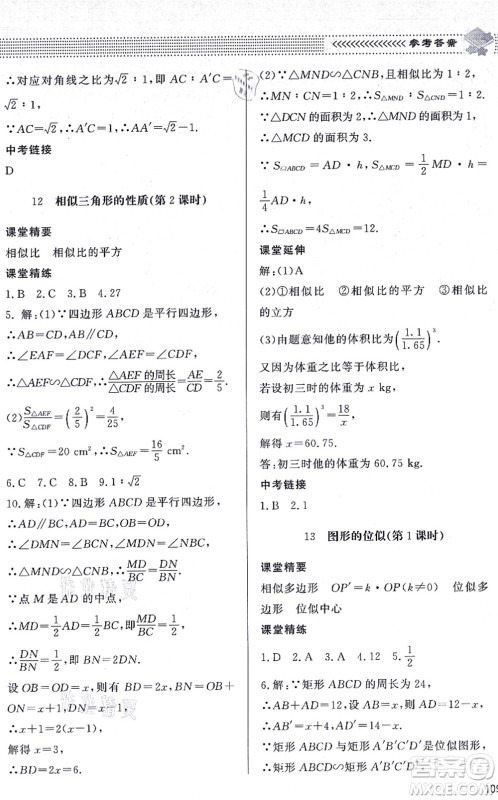 参考答案
∴对应对角线之比为√2∶1,即 AC∶A′C′=√2∶1,
∵AC=√2,∴A′C′=1,∴AA′=√2-1.
中考链接
D
12 相似三角形的性质(第2课时)
课堂精要
相似比 相似比的平方
课堂精练
1.B 2.C 3.B 4.27
5.解:(1)∵四边形 ABCD 是平行四边形,
∴AB=CD,AB∥CD,
∴∠EAF=∠DCF,∠AEF=∠CDF,
∴△AEF∽△CDF,∴△AEF的周长/△CDF的周长=AE/CD=2/5.
(2)S△AEF/S△CDF=(2/5)²=4/25,
∵S△CDF=20 cm²,∴S△AEF=16/5 cm².
6.C 7.C 8.D 9.1∶√2
10.解:(1)∵四边形 ABCD 是平行四边形,
∴AD∥BC,AD=BC,
∴∠DMN=∠BCN,∠MDN=∠NBC,
∴△MND∽△CNB,∴MD/BC=DN/BN,
∵点 M 是 AD 的中点,
∴MD=1/2 AD=1/2 BC,即MD/BC=1/2,
∴DN/BN=1/2,即 BN=2DN,
设 OB=OD=x,则有 BD=2x,BN=OB+
ON=x+1,DN=x-1,
∴x+1=2(x-1),
解得 x=3,
∴BD=2x=6.
(2)∵△MND∽△CNB,且相似比为1∶2,
∴MN∶CN=1∶2,∴S△MND∶S△CND=1∶2,
∵△DCN 的面积为 2,
∴△MND 的面积为 1,∴△MCD 的面积为 3.
∵S□ABCD=AD·h,S△MCD=1/2 MD·h=
1/4 AD·h,
∴S□ABCD=4S△MCD=12.
课堂延伸
解:(1)A
(2)①相似比 ②相似比的平方 ③相似比
的立方
(3)由题意知他的体积比为(1.1/1.65)³,
又因为体重之比等于体积比,
若设初三时的体重为 x kg,
则有(1.1/1.65)³=18/x,
解得 x=60.75.
答:初三时他的体重为 60.75 kg.
中考链接
1.B 2.1
13 图形的位似(第1课时)
课堂精要
相似多边形 OP′=k·OP(k≠0) 位似多
边形 位似中心
课堂精练
1.D 2.D 3.A 4.12 5.1/2
6.解:∵矩形 ABCD 的周长为 24,
∴AB+AD=12,设 AB=x,则 AD=12-x,
∴AB′=x+4,AD′=14-x,
∵矩形 ABCD 与矩形 A′B′C′D′是位似图形,
∴矩形 ABCD∽矩形 A′B′C′D′,